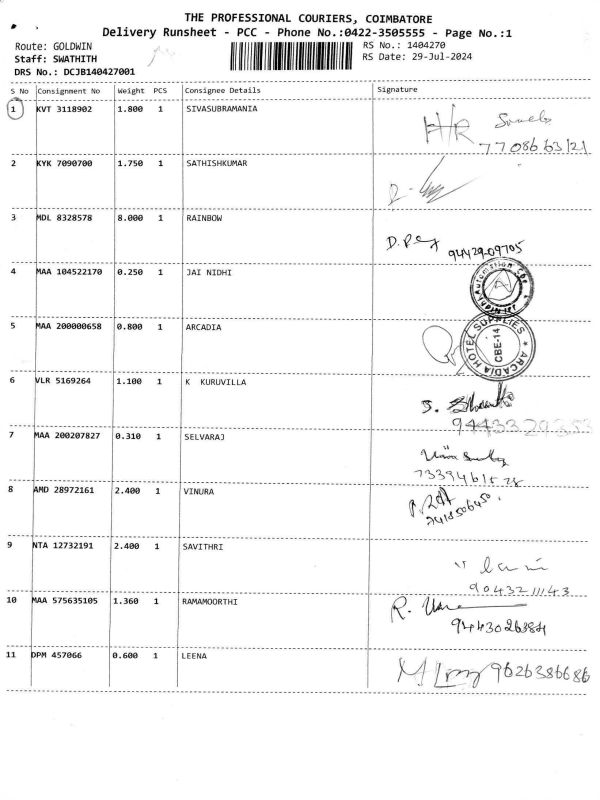 THE PROFESSIONAL COURIERS, COIMBATORE
Delivery Runsheet - PCC - Phone No.:0422-3505555 - Page No.:1
Route: GOLDWIN
RS No.: 1404270
Staff: SWATHITH
RS Date: 29-Jul-2024
DRS No.: DCJB140427001
S No Consignment No Weight PCS Consignee Details Signature
1 KVT 3118902 1.800 1 SIVASUBRAMANIA
H/R
7708663121
2 KYK 7090700 1.750 1 SATHISHKUMAR
3 MDL 8328578 8.000 1 RAINBOW
94429-09705
4 MAA 104522170 0.250 1 JAI NIDHI
5 MAA 200000658 0.800 1 ARCADIA
ARCADIA HOTEL SUPPLIES
CBE-14
6 VLR 5169264 1.100 1 K KURUVILLA
9443329353
7 MAA 200207827 0.310 1 SELVARAJ
8 AMD 28972161 2.400 1 VINURA
9 NTA 12732191 2.400 1 SAVITHRI
9043211143
10 MAA 575635105 1.360 1 RAMAMOORTHI
9443026384
11 DPM 457066 0.600 1 LEENA
9626386686